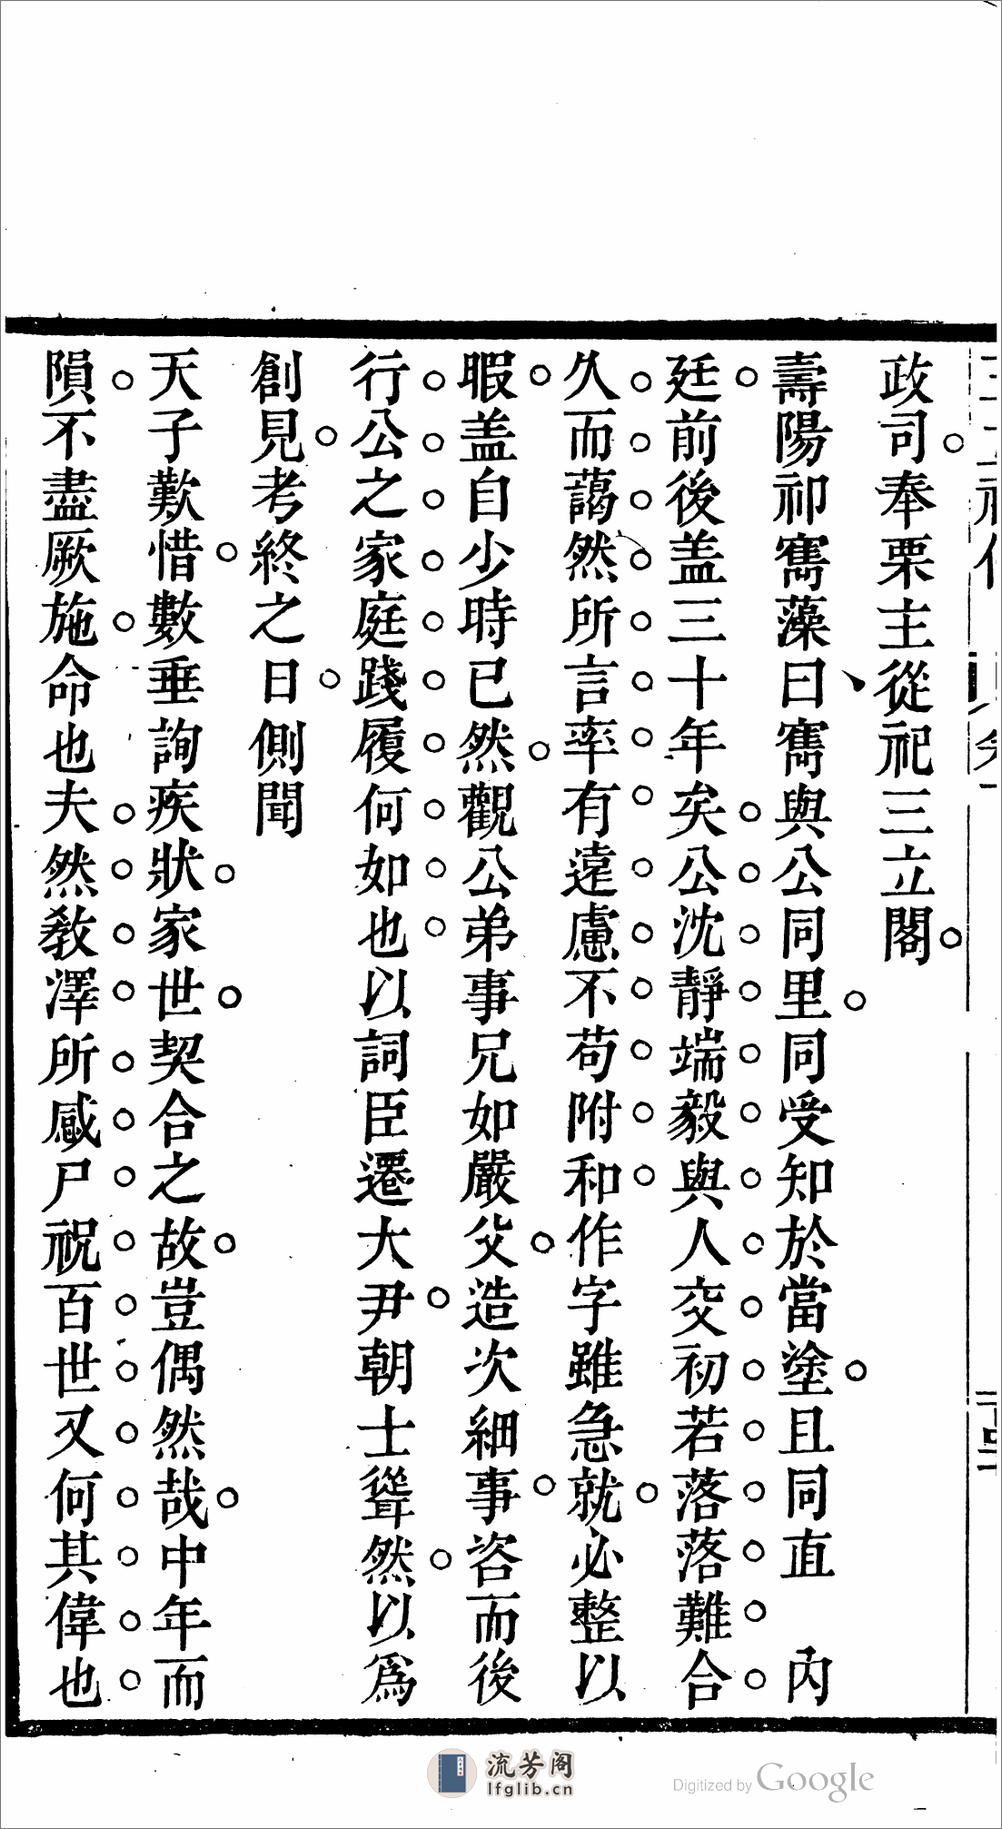 政司奉栗主從祀三立閣
壽陽祁寯藻曰寯與公同里同受知於當塗且同直 內
廷前後盖三十年矣公沈靜端毅與人交初若落落難合
久而藹然所言率有遠慮不苟附和作字雖急就必整以
暇盖自少時已然觀公弟事兄如嚴父造次細事咨而後
行公之家庭踐履何如也以詞臣遷大尹朝士聳然以爲
創見考終之日側聞
天子歎惜數垂詢疾狀家世契合之故豈偶然哉中年而
隕不盡厥施命也夫然教澤所感尸祝百世又何其偉也
流芳阁
lfglib.cn
Digitized by Google